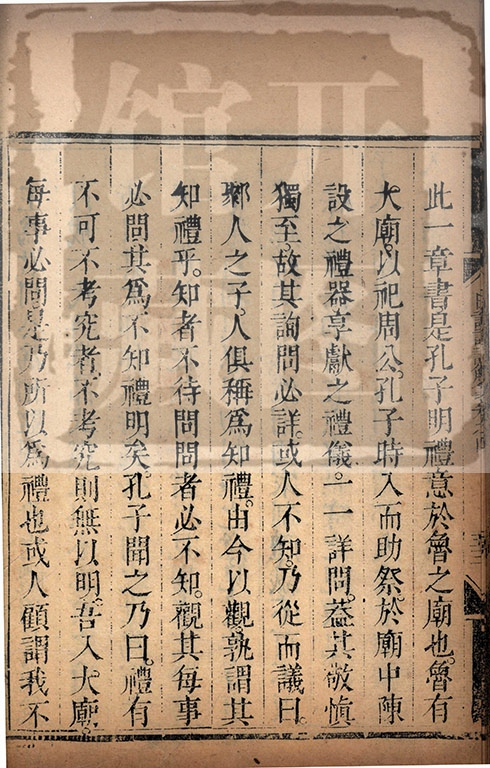 此一章書是孔子明禮意於魯之廟也。魯有
大廟。以祀周公。孔子時入而助祭。於廟中陳
設之禮器。享獻之禮儀。一一詳問。蓋其敬慎
獨至。故其詢問必詳。或人不知。乃從而議曰。
鄹人之子。人俱稱爲知禮。由今以觀。孰謂其
知禮乎。知者不待問。問者必不知。觀其每事
必問。其爲不知禮明矣。孔子聞之乃曰。禮有
不可不考究者。不考究則無以明。吾入大廟。
每事必問。是乃所以爲禮也。或人顧謂我不